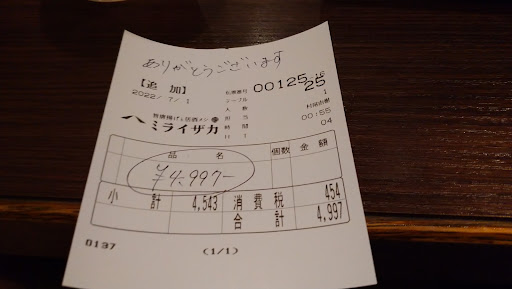 ありがとうございます
【追 加】 伝票番号 00125-16
2022/ 7/ 1 テーブル 25
人数 1
ミライザカ 担当
時間 00:55
04
品 名 個数 金額
¥4,997-
小 計 4,543 消費税 454
合 計 4,997
0137 (1/1)